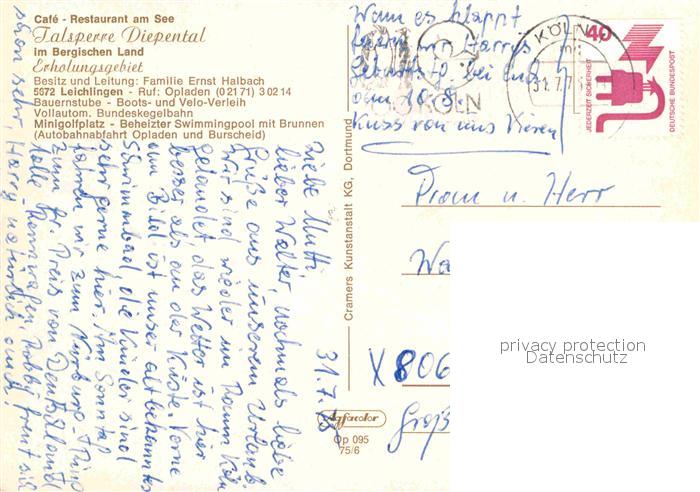 Café - Restaurant am See
Talsperre Diepental
im Bergischen Land
Erholungsgebiet
Besitz und Leitung: Familie Ernst Halbach
5672 Leichlingen - Ruf: Opladen (02171) 30214
Bauernstube - Boots- und Velo-Verleih
Vollautom. Bundeskegelbahn
Minigolfplatz - Beheizter Swimmingpool mit Brunnen
(Autobahnabfahrt Opladen und Burscheid)
Wann es klappt
feiern wir Harrys
Geburtst. bei Euch
am 10.8.
Kuss von uns Vieren
KÖLN
31.7.7
KÖLN
40
JEDERZEIT SICHERHEIT
DEUTSCHE BUNDESPOST
31.7.
Liebe Mutti
lieber Walter, nochmals liebe
Grüße aus unserem Urlaub.
Wir sind wieder im Raum Köln
gelandet das Wetter ist hier
besser als an der Küste. Vorne
am Bild ist unser altbekanntes
Schwimmbad, die Kinder sind
sehr gerne hier. Am Sonntag
fahren wir zum Nürburg-Ring
zum Gr. Preis von Deutschland
tolle Rennwagen, freut sich
schon sehr, Harry natürlich auch!
Cramers Kunstanstalt KG, Dortmund
Agfacolor
Op 095
75/6
Fram u. Herr
Wa
X 806
Groß
privacy protection
Datenschutz